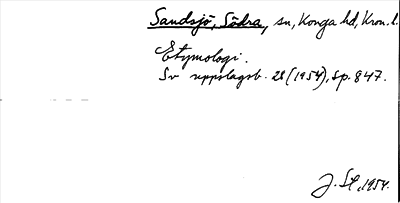 Sandsjö, Södra, sn, Konga hd, Kron. l.
Etymologi.
Sv uppslagsb. 28 (1954), sp. 847.
J. St, 1954.